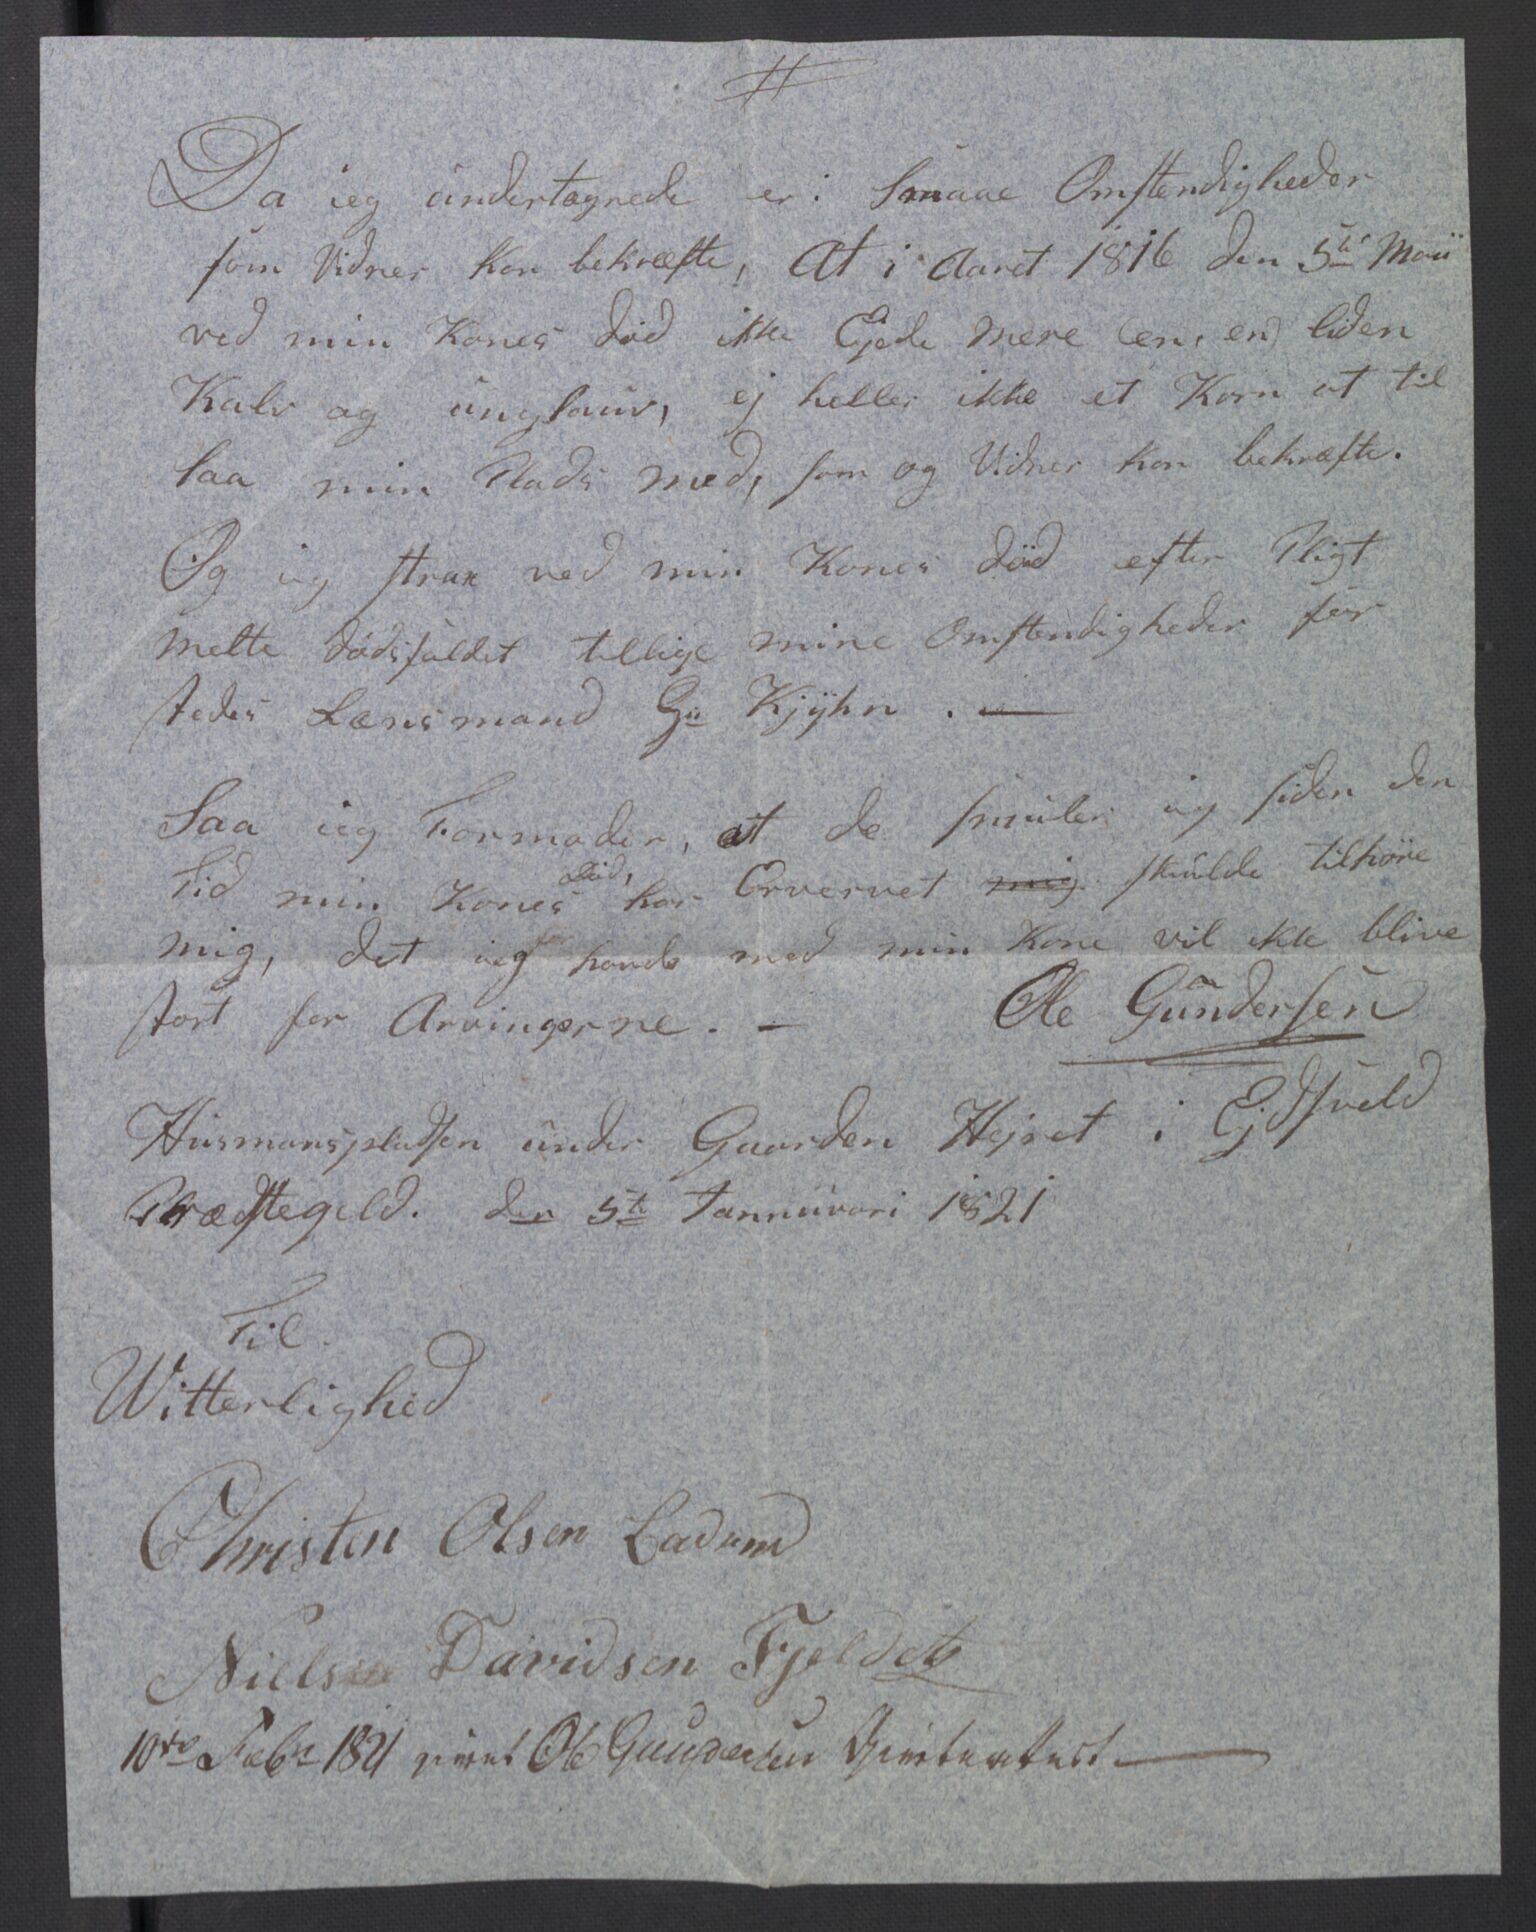 Da ieg undertægnede er i Smaae Omstendigheder
som Vidner kan bekræfte, At i Aaret 1816 den 5te Maii
ved min Kones død ikke Ejede Mere (en, en) liden
Kalv og ungsauv, ej heller ikke et Korn at til
saa min Plads med, som og Vidner kan bekræfte.
Og ieg strax ved min Kones død efter Pligt
melte dødsfaldet tillige mine Omstendigheder for
stedes Lænsmand Gu Kjÿhn. —
Saa ieg Formoder, at de smuler ieg siden den
Tid min Kones død, har Ervervet mig skulde tilhøre
mig, det ieg før havde med min Kone vil ikke blive
stort for Arvingerne. —
Ole Gundersen
Husmanspladsen under Gaarden Hejret i Ejdsveld
Præstegeld. den 5te Jannuvari 1821
Til
Witterlighed
Christen Olsen Ladumd
Nielsen Davidsen Fjeldet
10de Febr 1821 Ole Gundersen